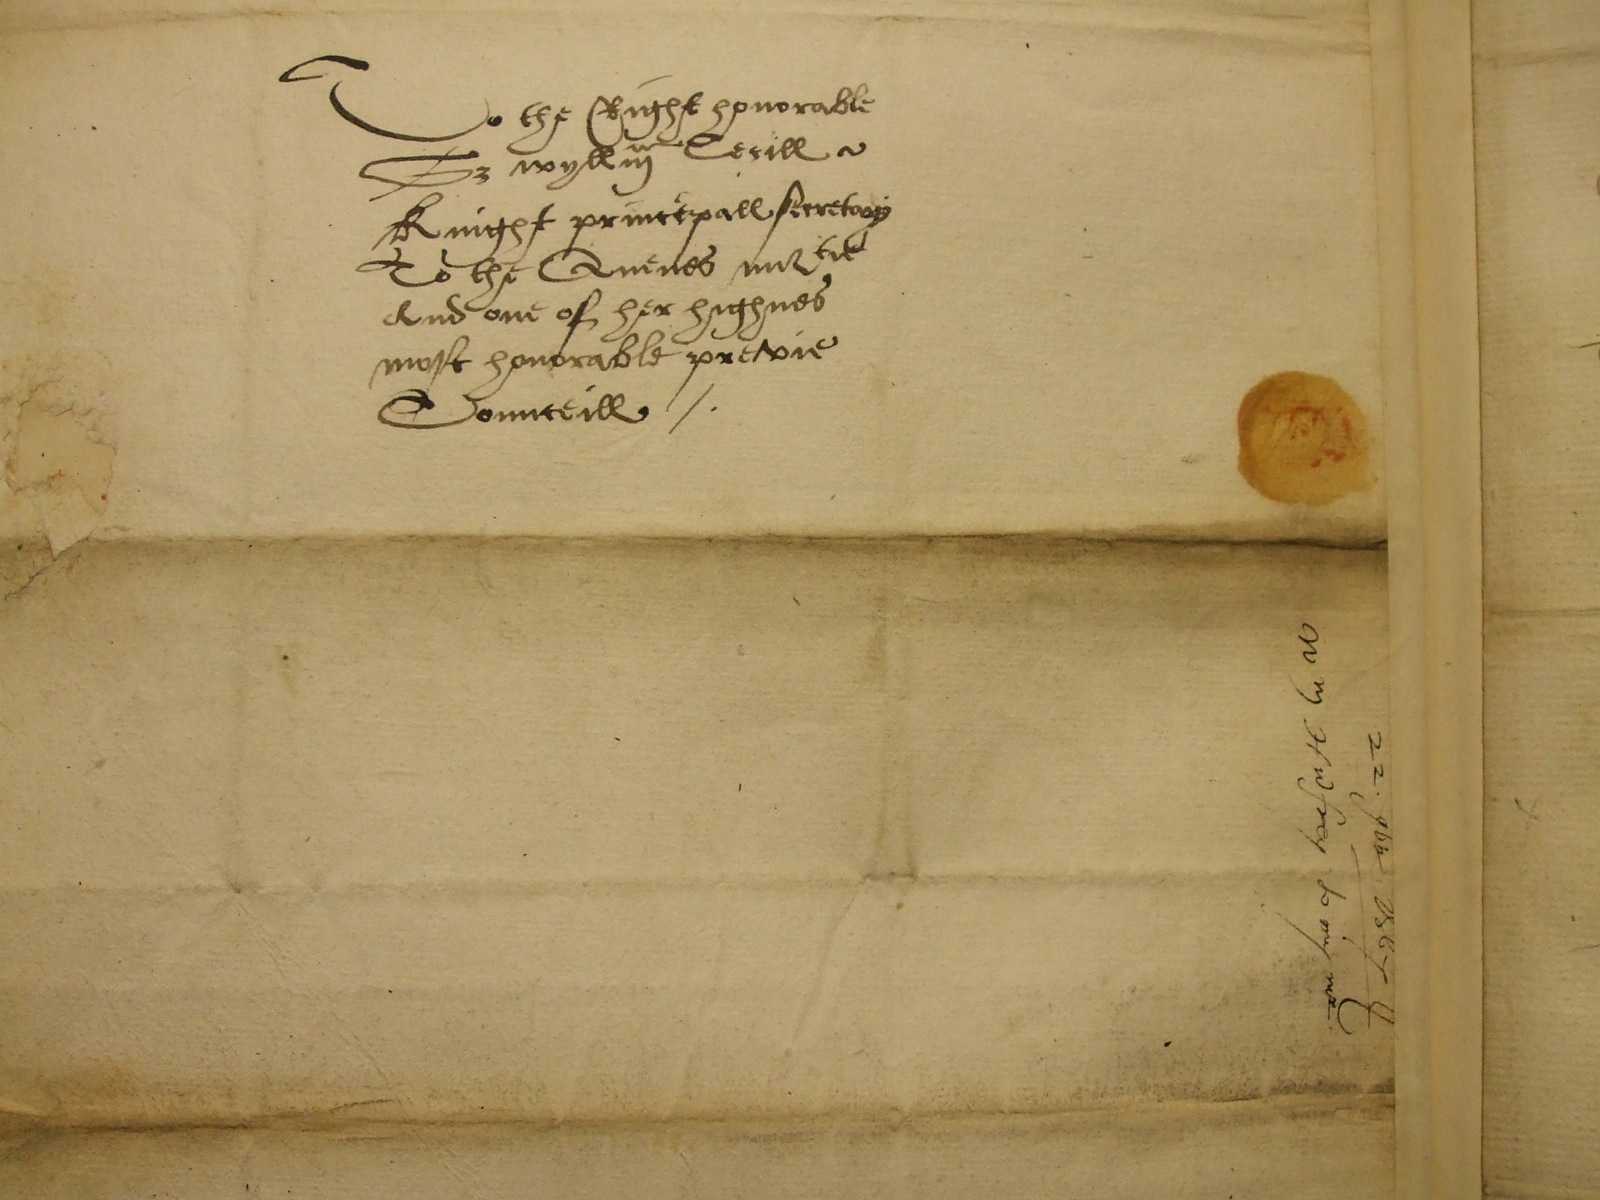 To the Right honorable
Sr wyllm Cecill
Knight princepall secretary
To the Quenes matie
And one of her highnes
most honorable prevvie
Counceill /.
22
1567
to my mr